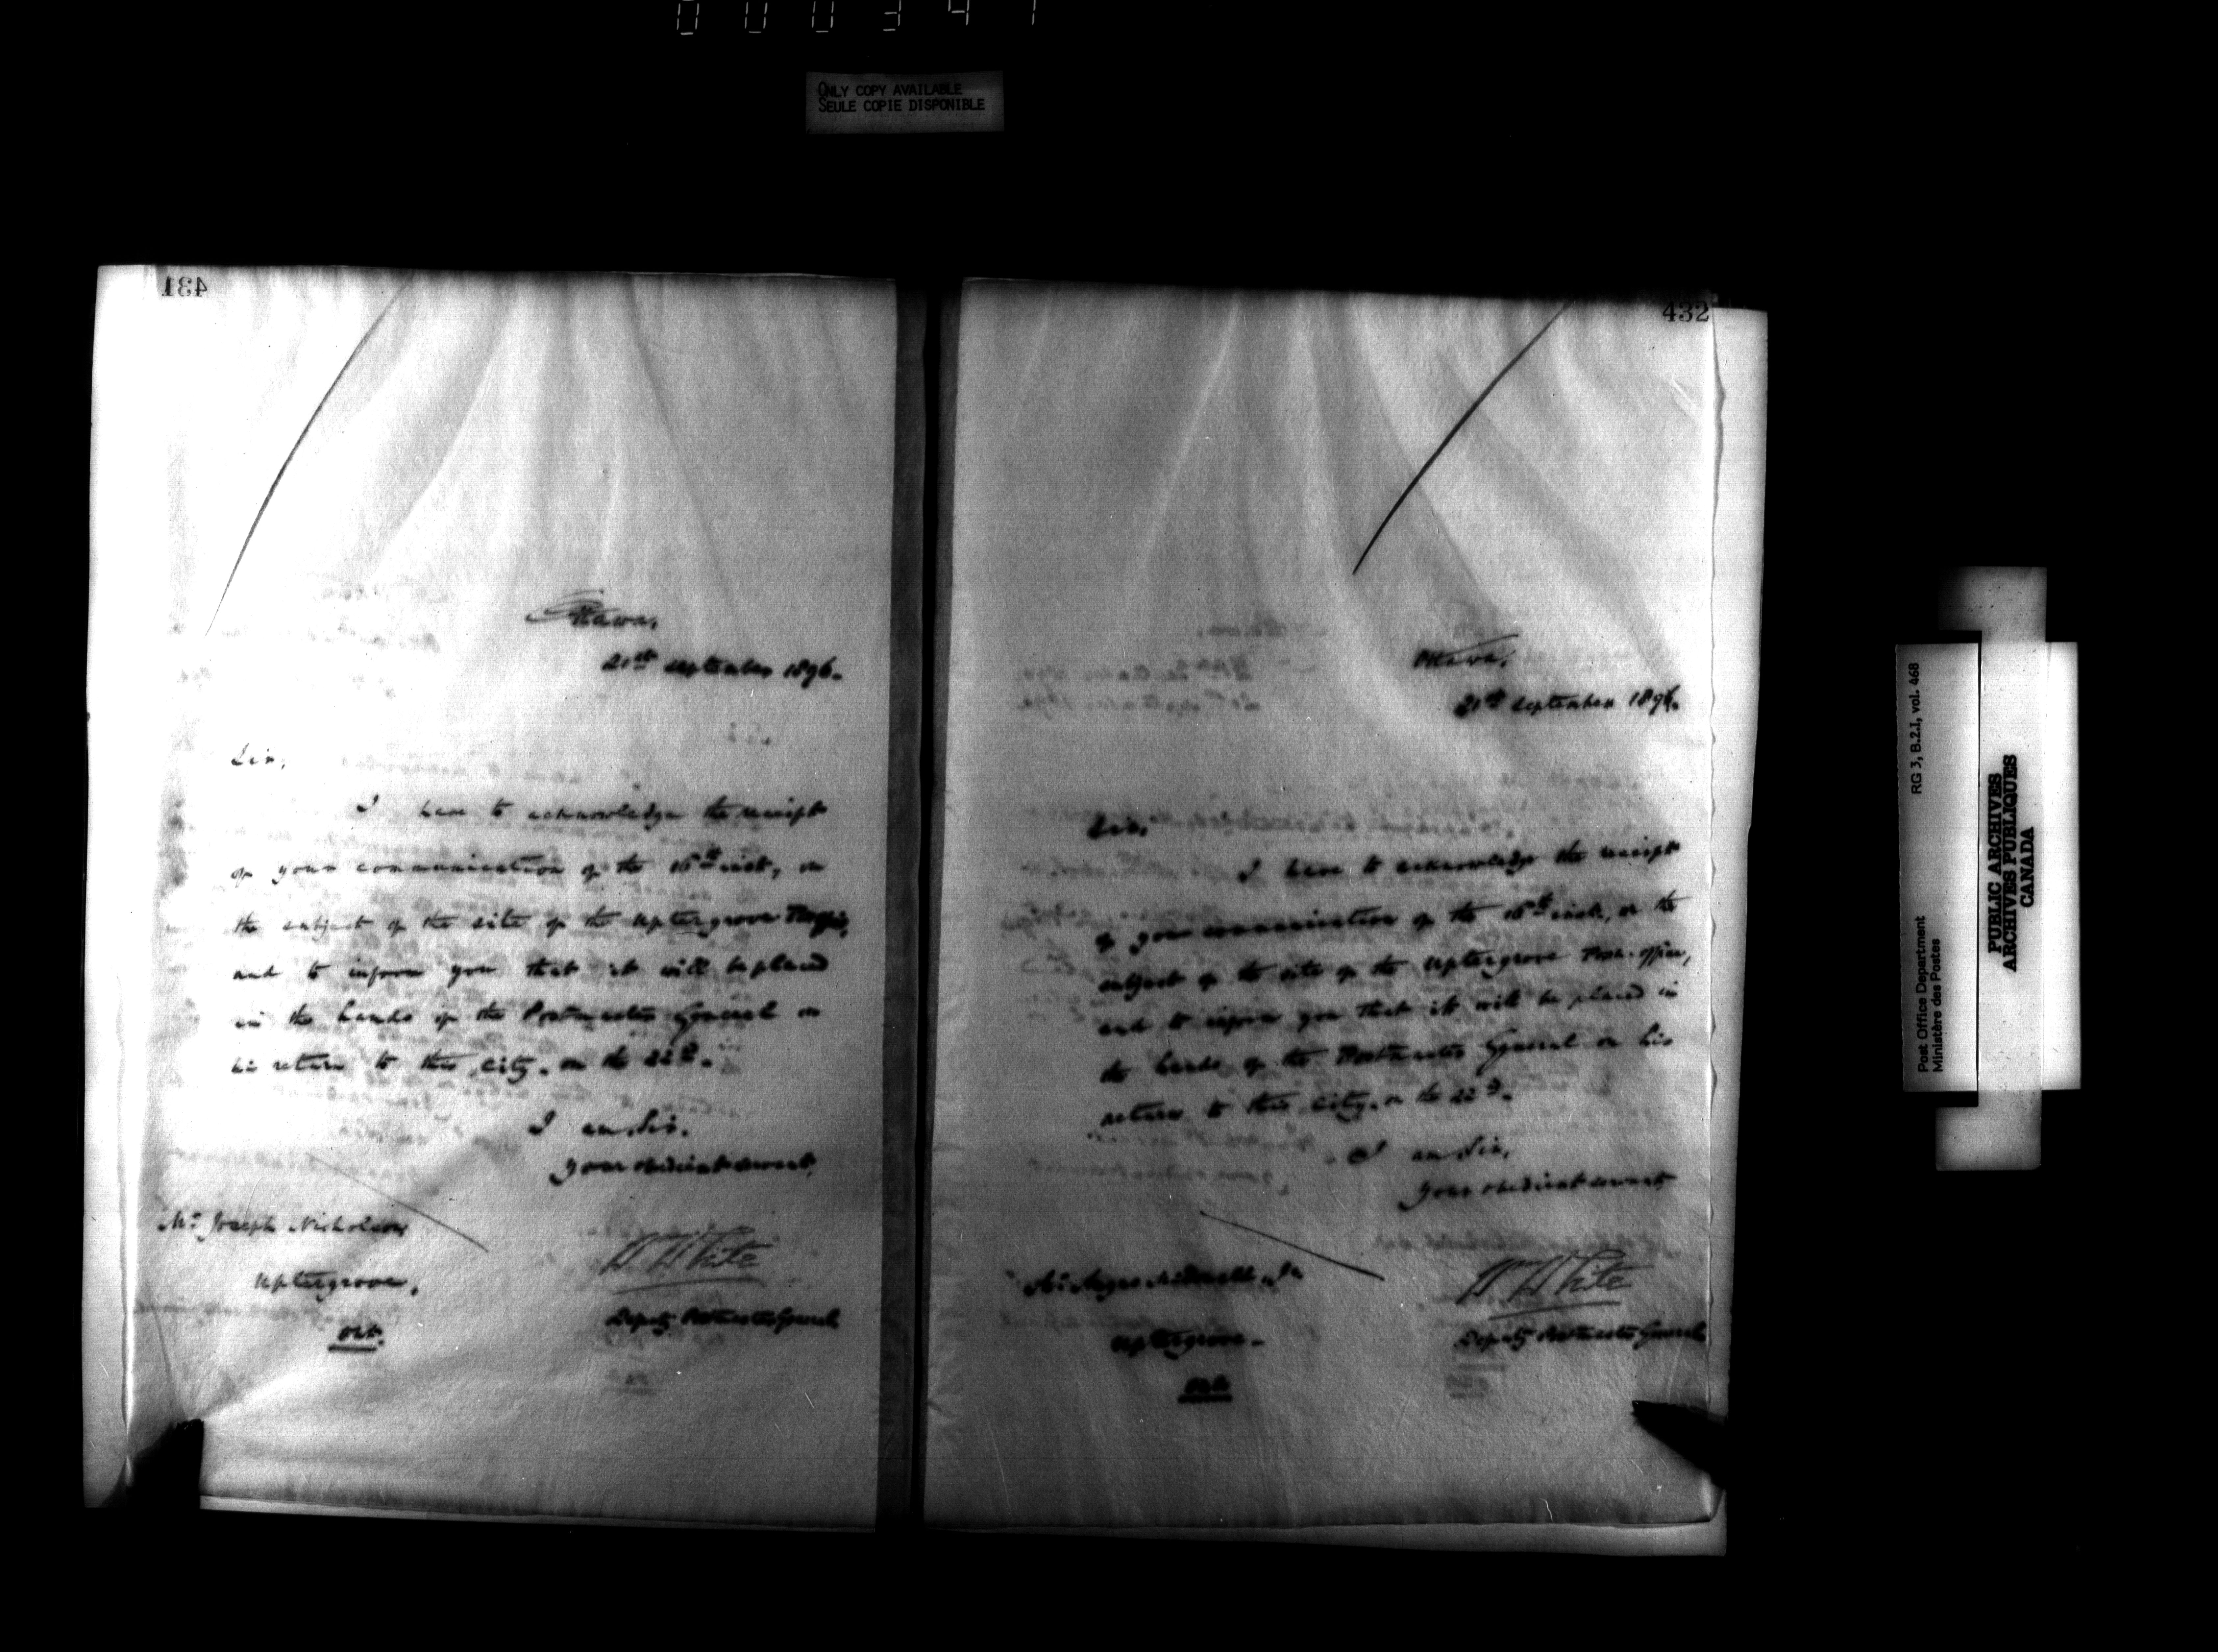 000341
ONLY COPY AVAILABLE
SEULE COPIE DISPONIBLE
431
Ottawa,
21st September 1896.
Sir,
I have to acknowledge the receipt
of your communication of the 16th inst, on
the subject of the site of the Uptergrove
and to inform you that it will be placed
in the hands of the Postmaster General on
his return to this city. on the 22nd.
I am, Sir.
Your obedient servant,
Mr. Joseph Nicholson
W White
Uptergrove,
Deputy Postmaster General
Ont.
432
Ottawa,
21st September 1896.
Sir,
I have to acknowledge the receipt
of your communication of the 16th inst, on the
subject of the site of the Uptergrove Post-office,
and to inform you that it will be placed in
the hands of the Postmaster General on his
return to this city. on the 22nd.
I am Sir,
Your obedient servant
Mr. Angus McDonell, Jr
W White
Uptergrove-
Deputy Postmaster General
Ont
Post Office Department
Ministère des Postes
RG 3, B.2.I, vol. 468
PUBLIC ARCHIVES
ARCHIVES PUBLIQUES
CANADA